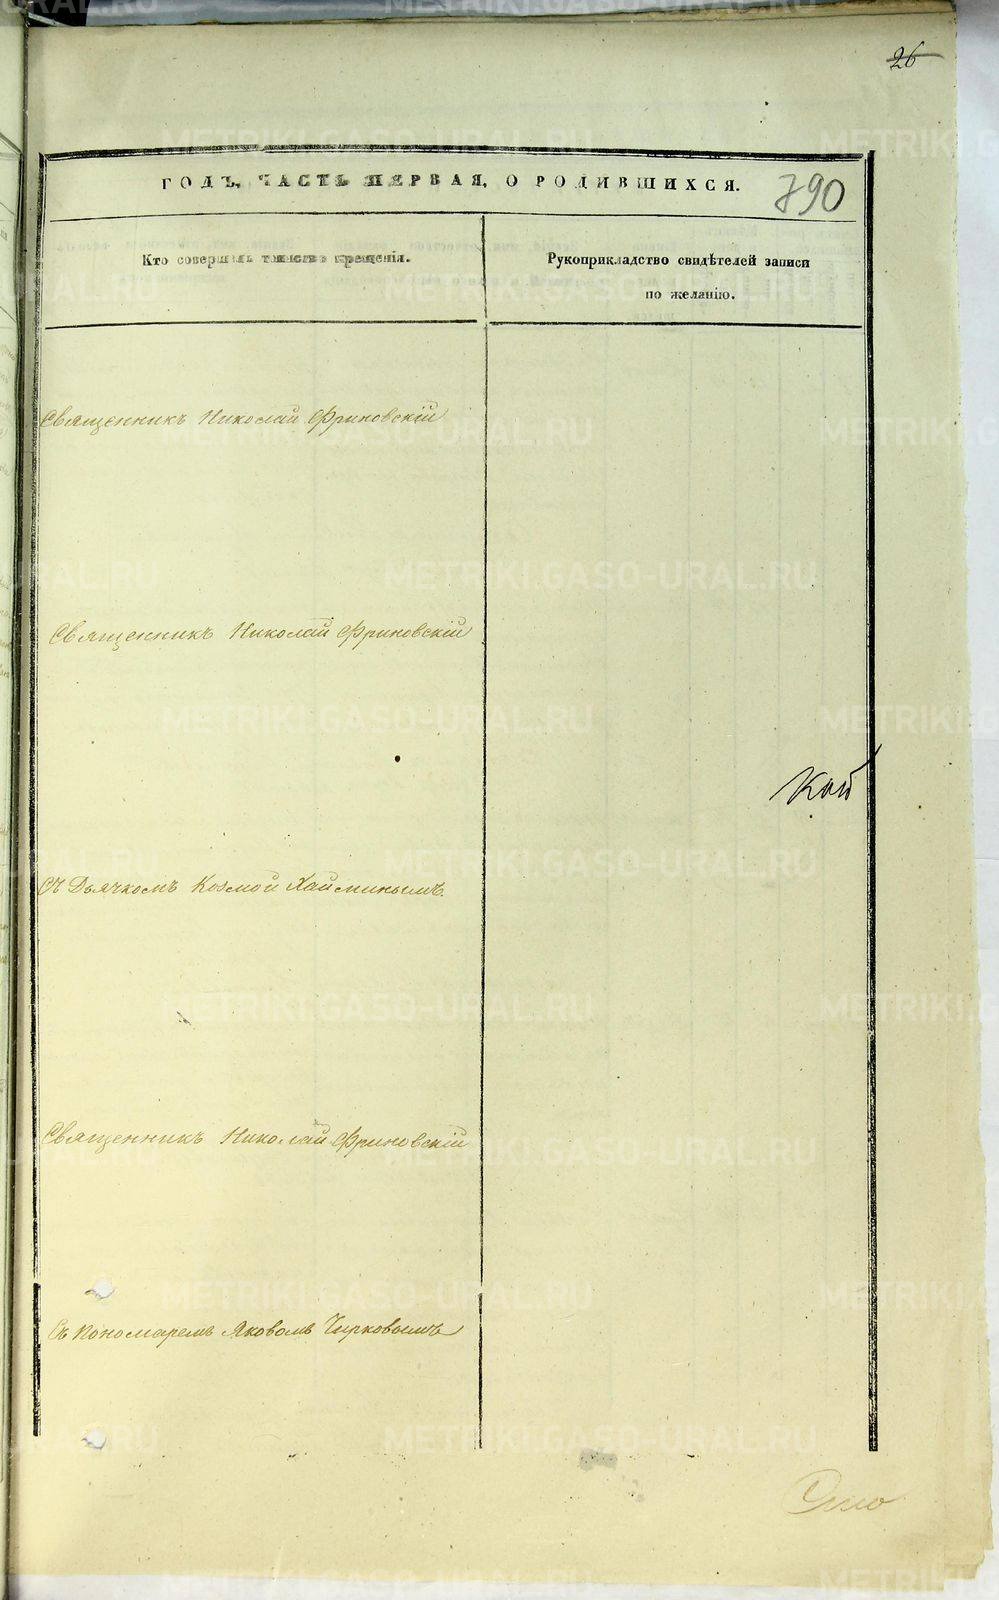 26
ГОДЪ, ЧАСТЬ ПЕРВАЯ, О РОДИВШИХСЯ.
790
Кто совершалъ таинство крещенія.
Рукоприкладство свидѣтелей записи
по желанію.
Священникъ Николай Фриновскій
Священникъ Николай Фриновскій
Съ Дьячкомъ Козмой Хайминымъ.
Священникъ Николай Фриновскій
Съ пономаремъ Яковомъ Чирковымъ
METRIKI.GASO-URAL.RU